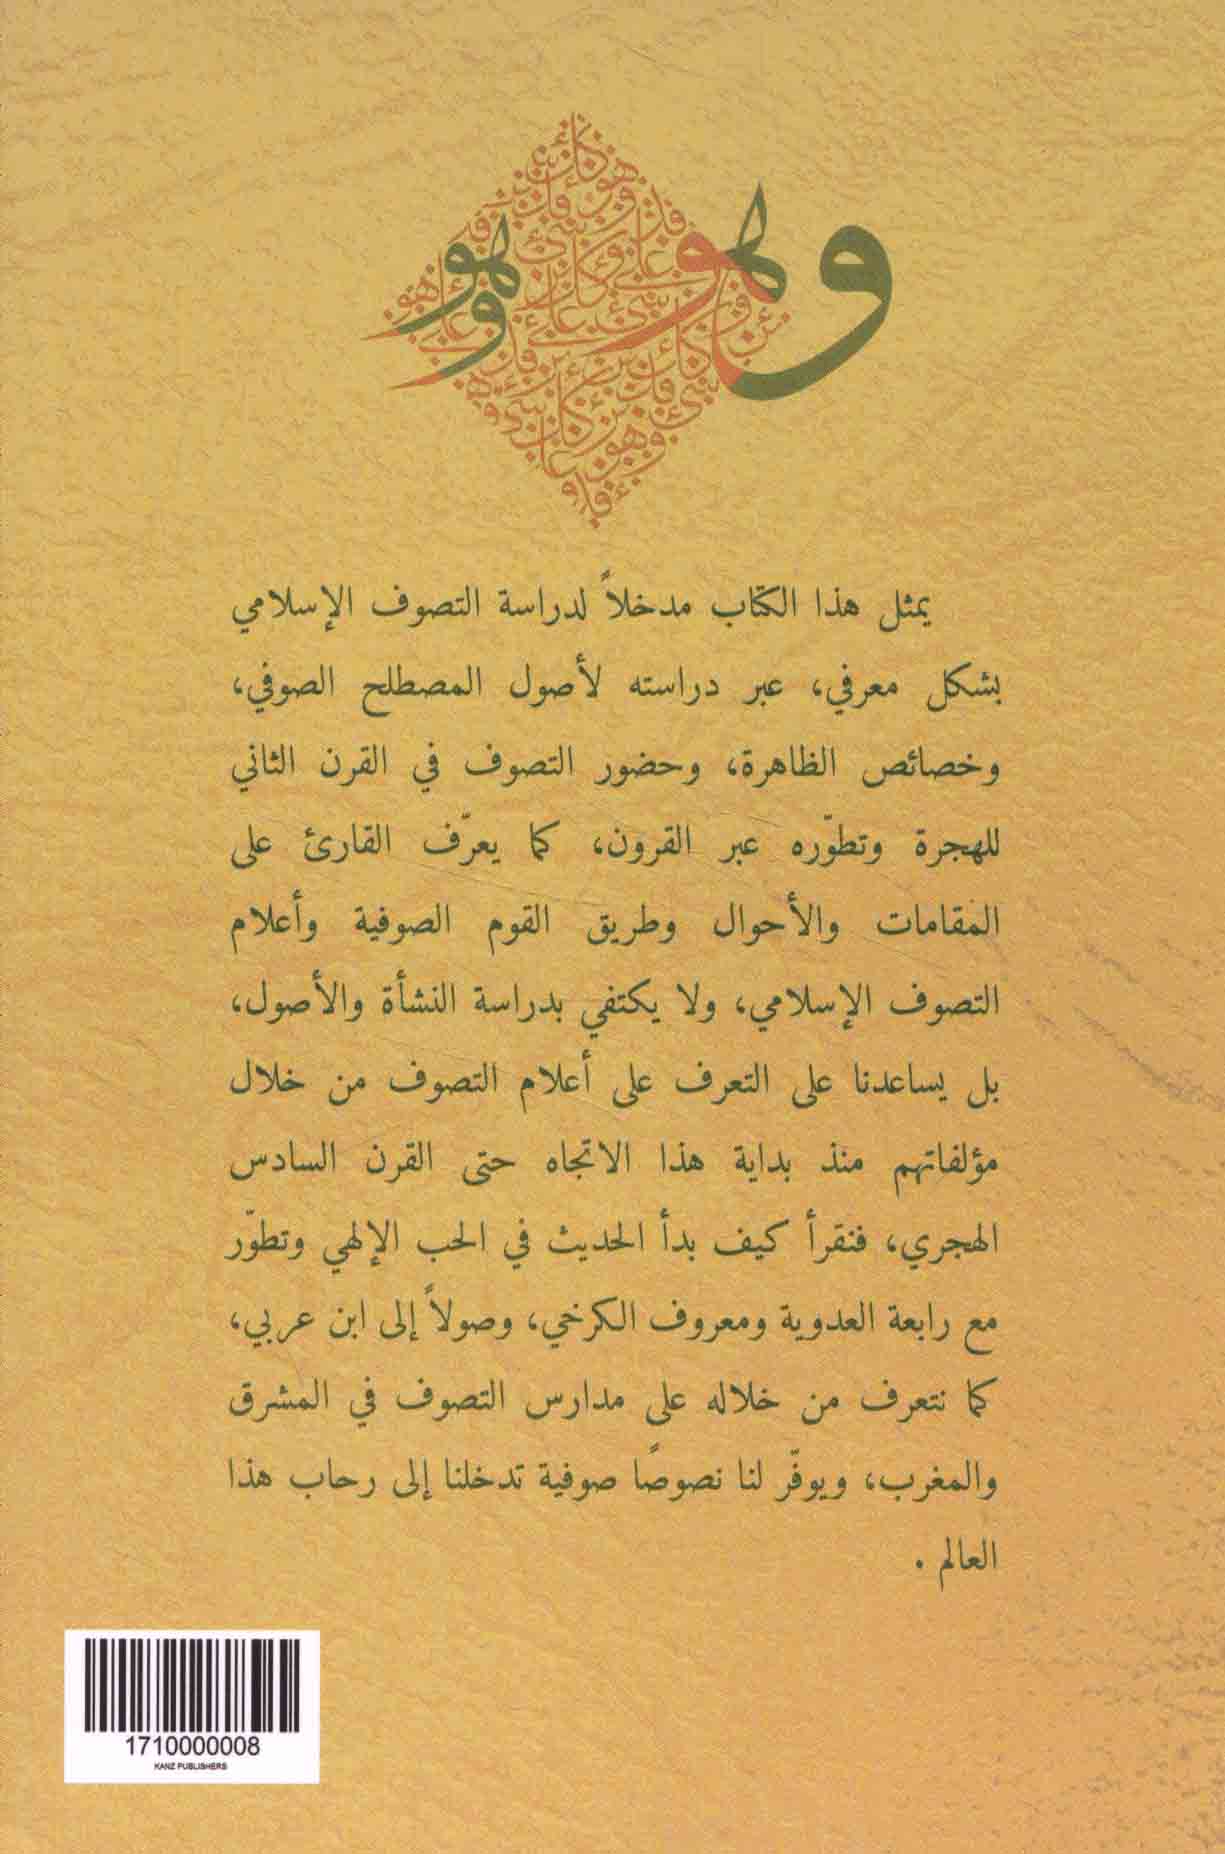 وهو
وهو
يمثل هذا الكتاب مدخلاً لدراسة التصوف الإسلامي
بشكل معرفي، عبر دراسته لأصول المصطلح الصوفي،
وخصائص الظاهرة، وحضور التصوف في القرن الثاني
للهجرة وتطوّره عبر القرون، كما يعرّف القارئ على
المقامات والأحوال وطريق القوم الصوفية وأعلام
التصوف الإسلامي، ولا يكتفي بدراسة النشأة والأصول،
بل يساعدنا على التعرف على أعلام التصوف من خلال
مؤلفاتهم منذ بداية هذا الاتجاه حتى القرن السادس
الهجري، فنقرأ كيف بدأ الحديث في الحب الإلهي وتطوّر
مع رابعة العدوية ومعروف الكرخي، وصولاً إلى ابن عربي،
كما نتعرف من خلاله على مدارس التصوف في المشرق
والمغرب، ويوفّر لنا نصوصًا صوفية تدخلنا إلى رحاب هذا
العالم .
1710000008
KANZ PUBLISHERS